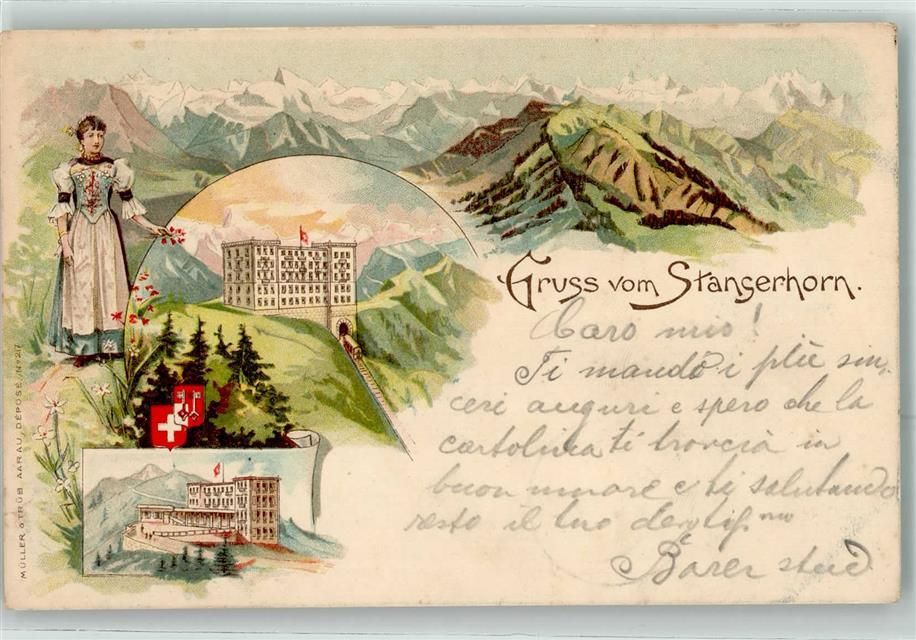 Gruss vom Stanserhorn.
Caro mio!
Ti mando i più sin-
ceri auguri e spero che la
cartolina ti troverà in
buon umore e ti salutando
resto il tuo
stud
MÜLLER & TRÜB AARAU, DEPOSÉ, No 217